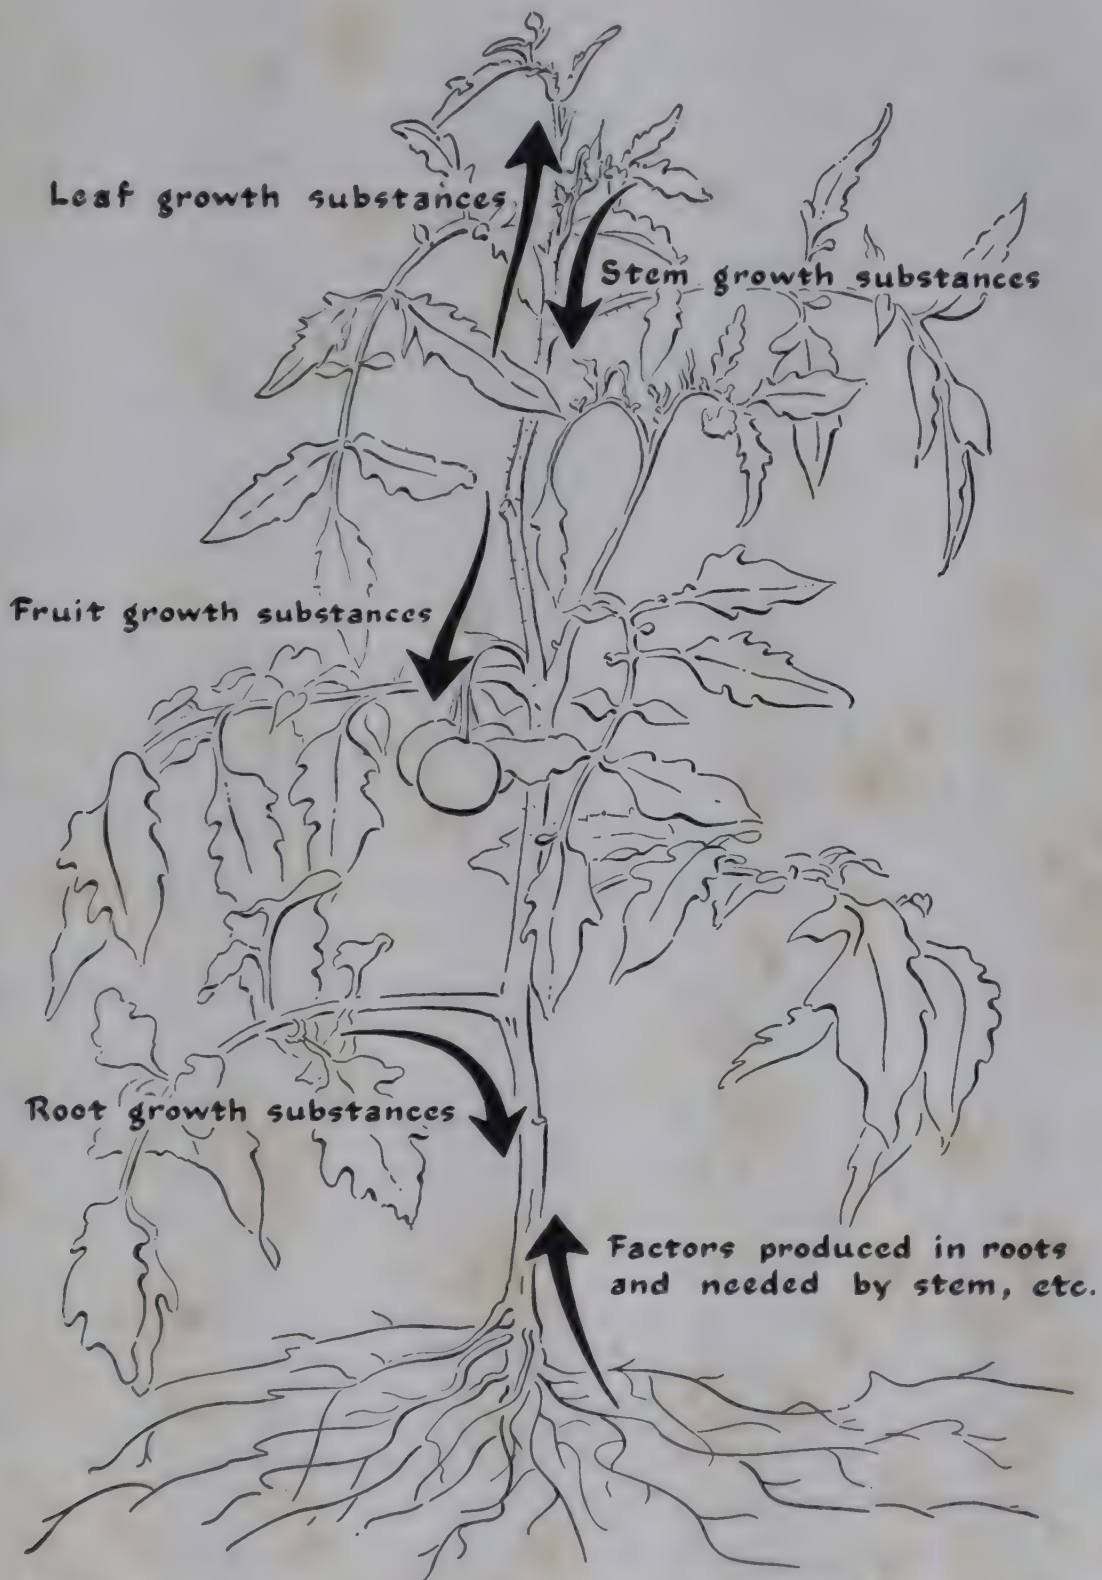 Leaf growth substances
Stem growth substances
Fruit growth substances
Root growth substances
Factors produced in roots
and needed by stem, etc.